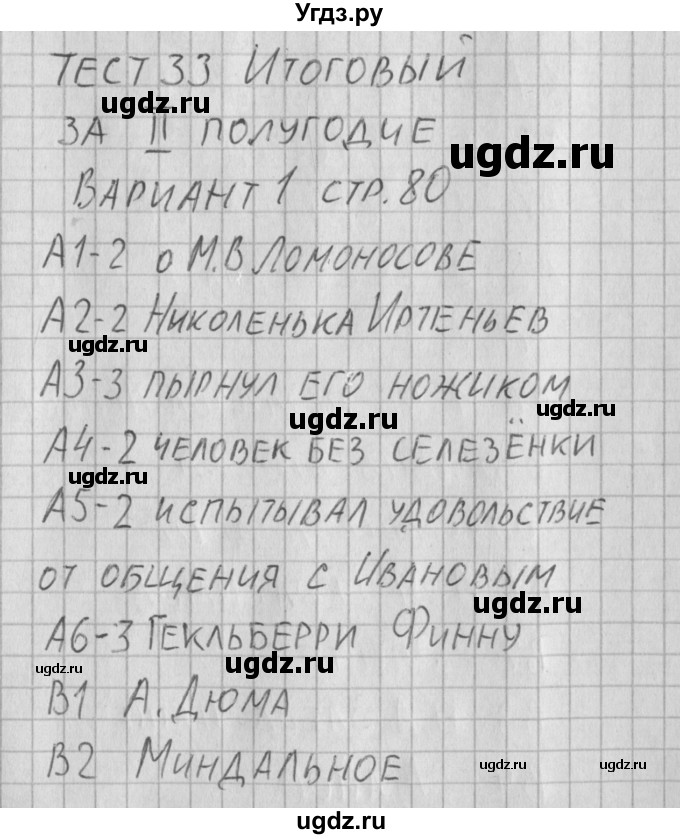 Угдз.ру
ТЕСТ 33 ИТОГОВЫЙ
ugdz.ru
ЗА II ПОЛУГОДИЕ
ugdz.ru
ВАРИАНТ 1 СТР. 80
А1-2 о М.В ЛОМОНОСОВЕ
А2-2 НИКОЛЕНЬКА ИРТЕНЬЕВ
ugdz.ru
А3-3 ПЫРНУЛ ЕГО НОЖИКОМ
ugdz.ru
ugdz.ru
А4-2 ЧЕЛОВЕК БЕЗ СЕЛЕЗЁНКИ
ugdz.ru
А5-2 ИСПЫТЫВАЛ УДОВОЛЬСТВИЕ
ОТ ОБЩЕНИЯ С ИВАНОВЫМ
ugdz.ru
А6-3 ГЕКЛЬБЕРРИ ФИННУ
ugdz.ru
ugdz.ru
ugdz.ru
В1 А. ДЮМА
В2 МИНДАЛЬНОЕ
ugdz.ru
ugdz.ru
ugdz.ru